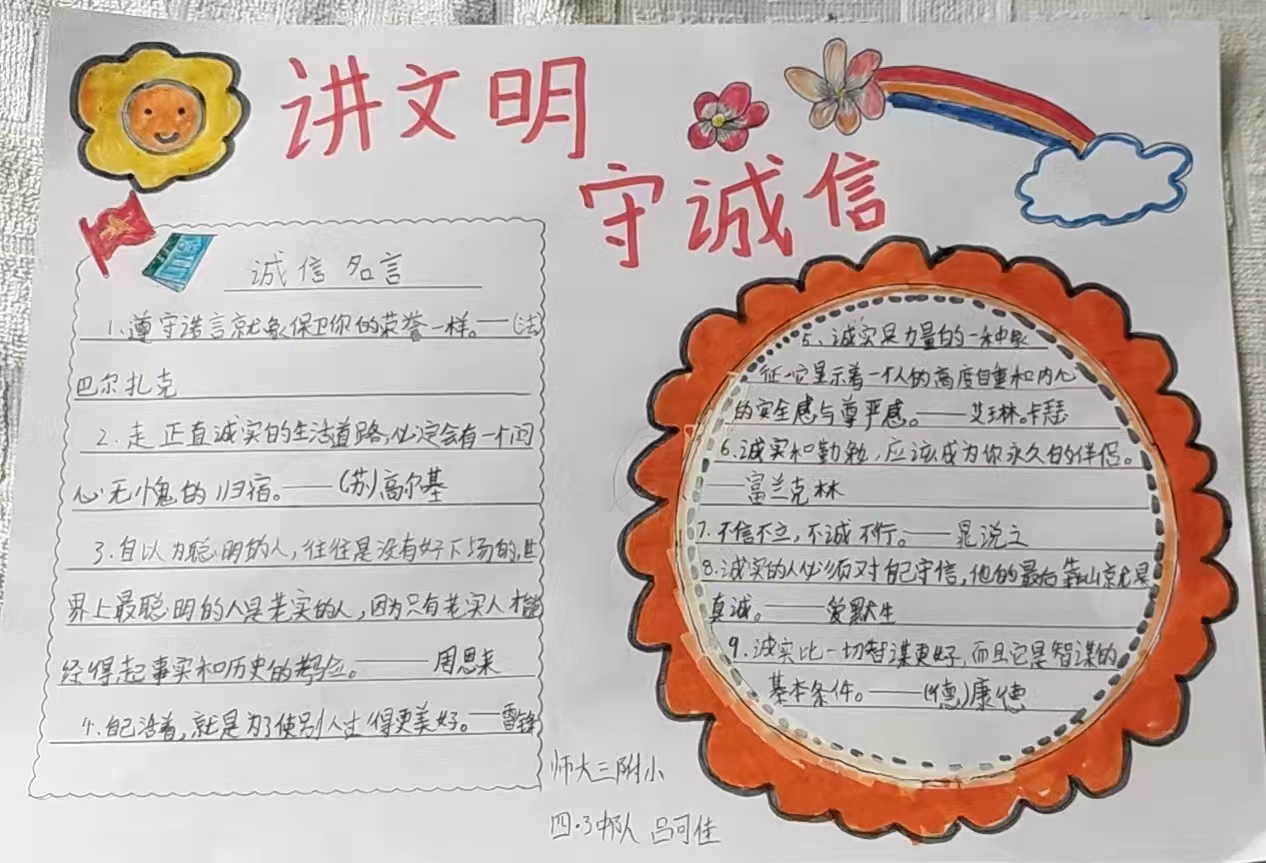 讲文明
守诚信
诚信名言
1.遵守诺言就象保卫你的荣誉一样。——(法
巴尔扎克
2.走正直诚实的生活道路,必定会有一个问
心无愧的归宿。——(苏)高尔基
3.自以为聪明的人,往往是没有好下场的,世
界上最聪明的人是老实的人,因为只有老实人才能
经得起事实和历史的考验。——周恩来
4.自己活着,就是为了使别人生得更美好。——雷锋
5、诚实是力量的一种象
征,它显示着一个人的高度自重和内心
的安全感与尊严感。——艾琳.卡瑟
6.诚实和勤勉,应该成为你永久的伴侣。
——富兰克林
7.不信不立,不诚不行。——晁说之
8.诚实的人必须对自己守信,他的最后靠山就是
真诚。——爱默生
9、诚实比一切智谋更好,而且它是智谋的
基本条件。——(德)康德
师大三附小
四·3中队 吕可佳